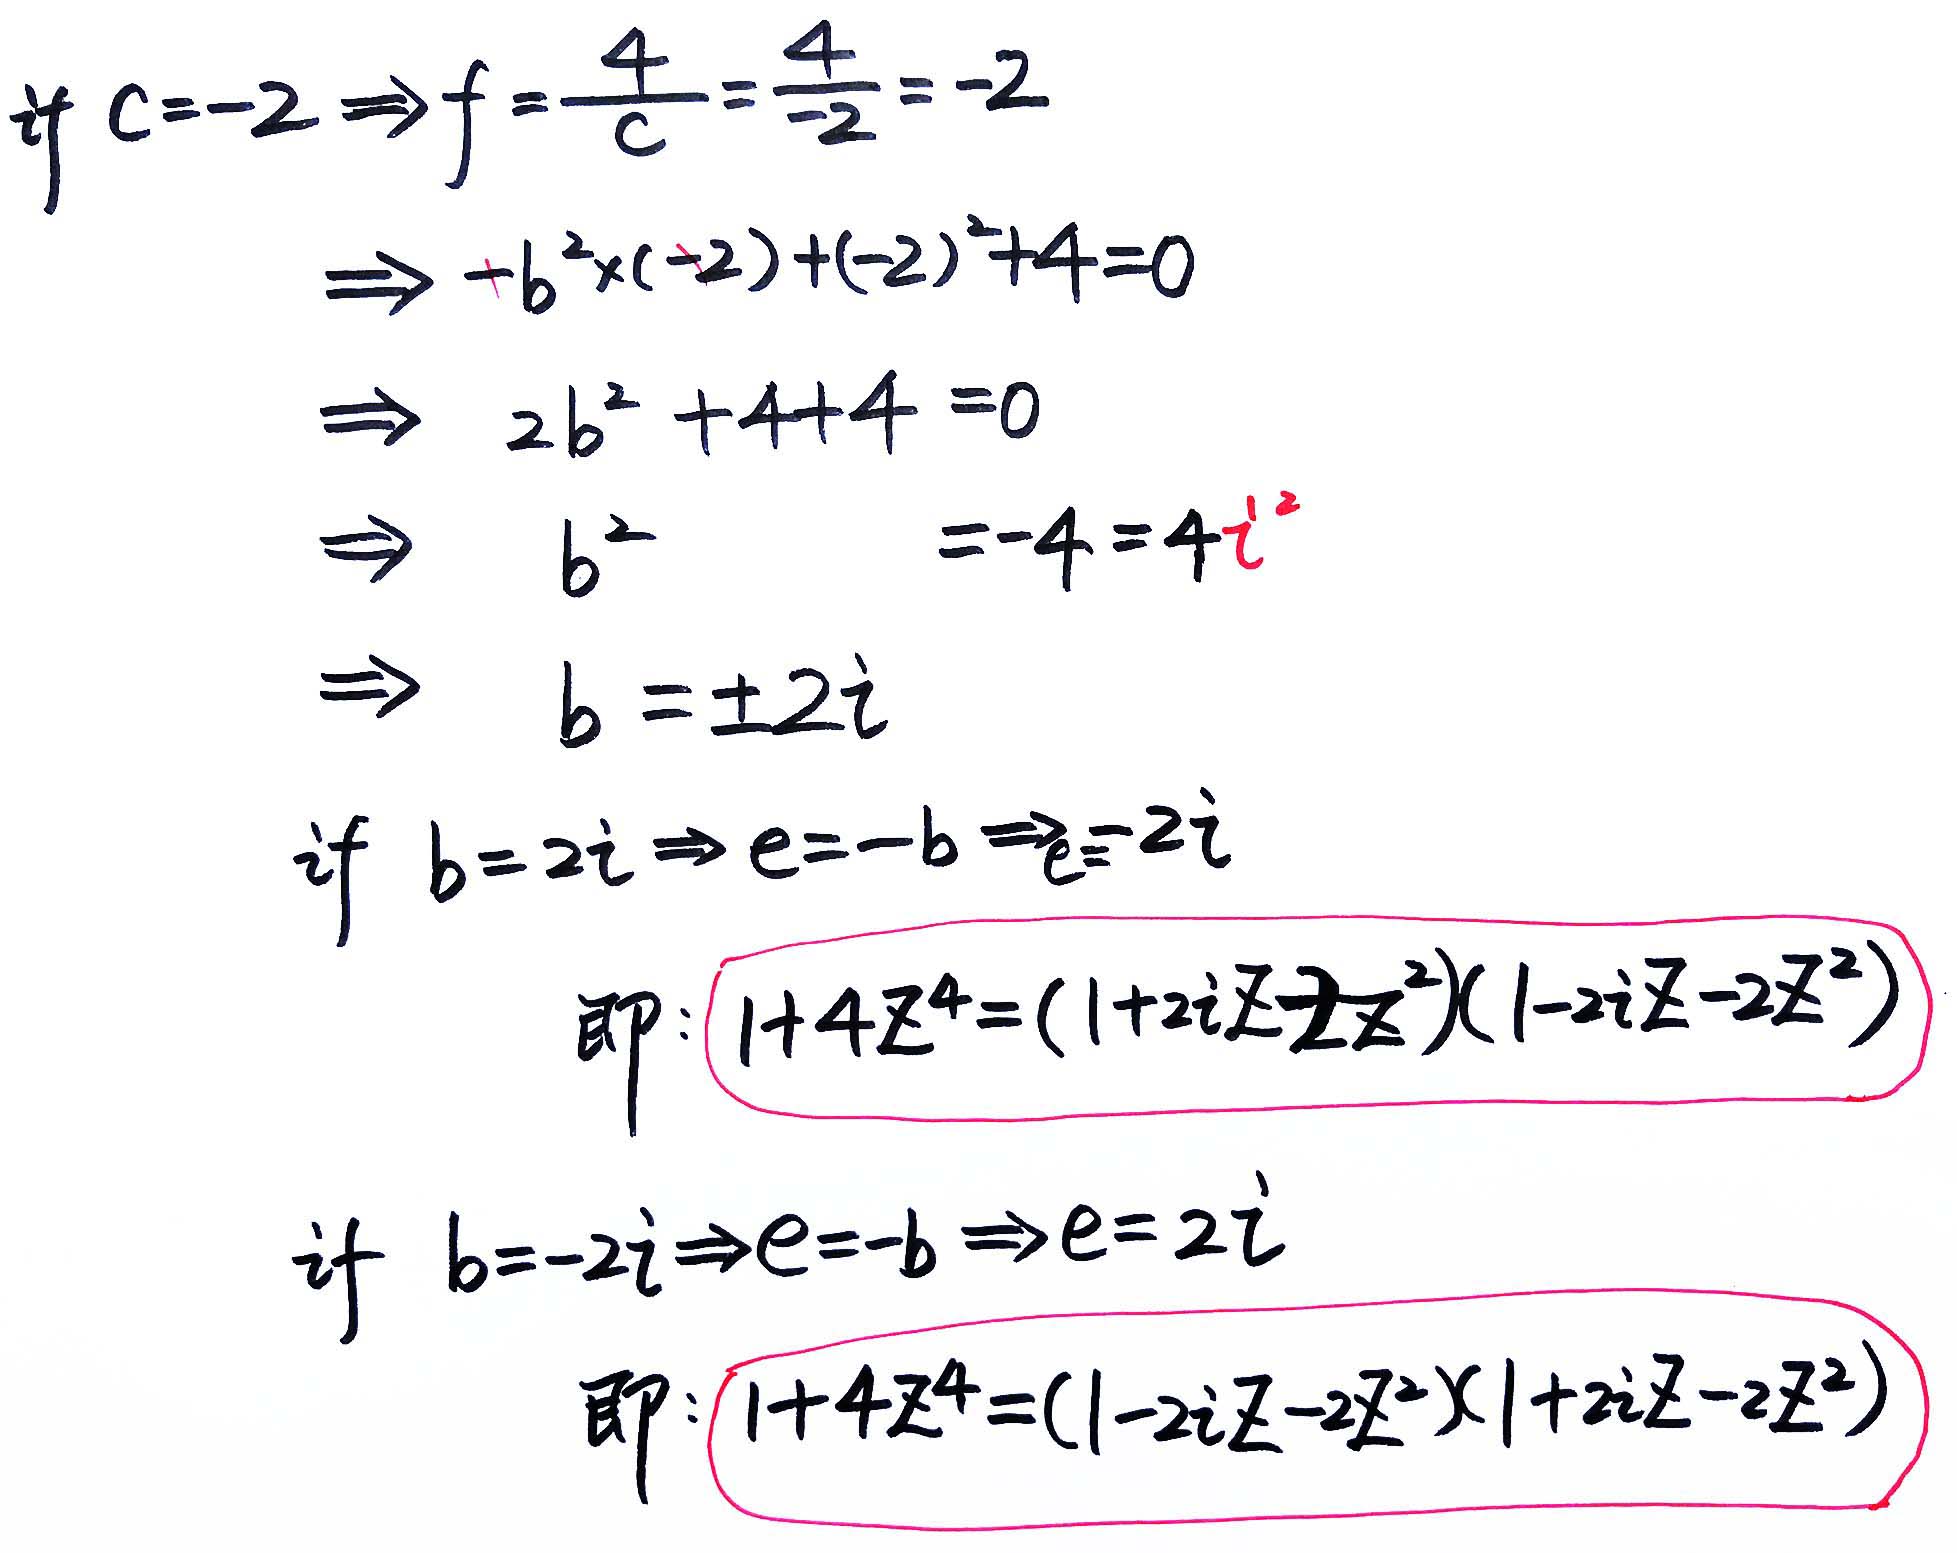 if c=-2 ⇒ f = 4/c = 4/-2 = -2
⇒ -b²×(-2)+(-2)²+4=0
⇒ 2b² +4+4 =0
⇒ b² =-4=4i²
⇒ b =±2i
if b=2i⇒e=-b⇒e=-2i
即: 1+4Z⁴=(1+2iZ-2Z²)(1-2iZ-2Z²)
if b=-2i⇒e=-b⇒e=2i
即: 1+4Z⁴=(1-2iZ-2Z²)(1+2iZ-2Z²)